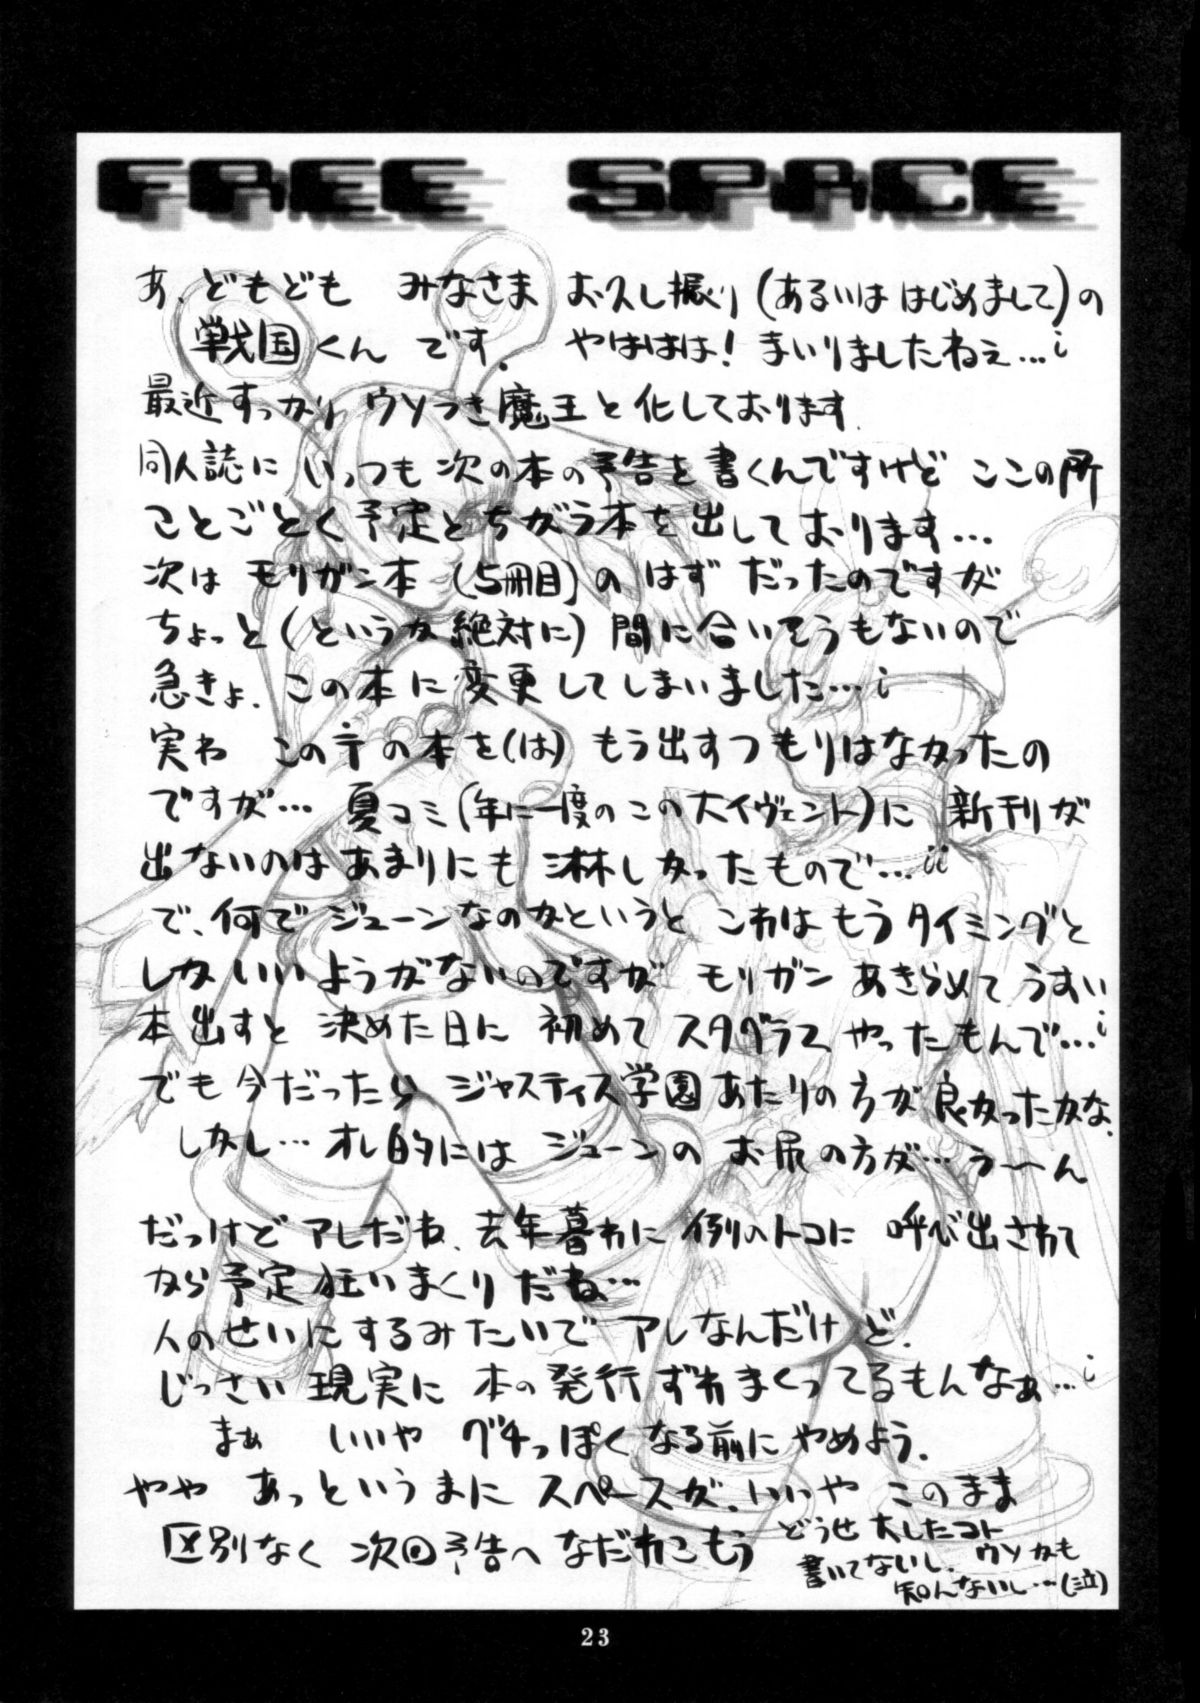 FREE SPACE
あ、どもども みなさま お久し振り(あるいは はじめまして)の
戦国くん です。 やははは! まいりましたねえ…
最近すっかり ウソつき魔王と化しております。
同人誌に いっつも 次の本の予告を書くんですけど ここの所
ことごとく予定とちがう本を出しております…
次は モリガン本 (5冊目)の はず だったのですが
ちょっと(というか絶対に)間に合いそうもないので
急きょ、この本に変更してしまいました…
実わ この予の本を(は)もう出すつもりはなかったの
ですが… 夏コミ(年に一度のこの大イヴェント)に 新刊が
出ないのはあまりにも 淋しかったもので…
で、何で ジューンなのかというと これは もうタイミングと
しかいいようがないのですが モリガン あきらめて うすい
本出すと 決めた日に 初めて スタグラス やったもんで…
でも今だったら ジャスティス学園あたりの方が良かったかな、
しかし… オレ的には ジューンの お尻の方が… う〜ん
だっけど アレだね、去年暮れに 例のトコに 呼び出されて
から予定狂いまくりだね…
人のせいにするみたいで アレなんだけど、
じっさい 現実に 本の発行ずれまくってるもんなぁ…
まぁ いいや グチっぽくなる前に やめよう。
やや あっというまに スペースが、いいや このまま
区別なく 次回予告へ なだれこもう
どうせ大したコト
書いてないし、ウソかも
知んないし…(泣)
23